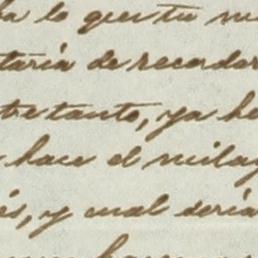 lo que tu
taria de recordar
tre tanto, ya he
hace el milag
és, y cual sería